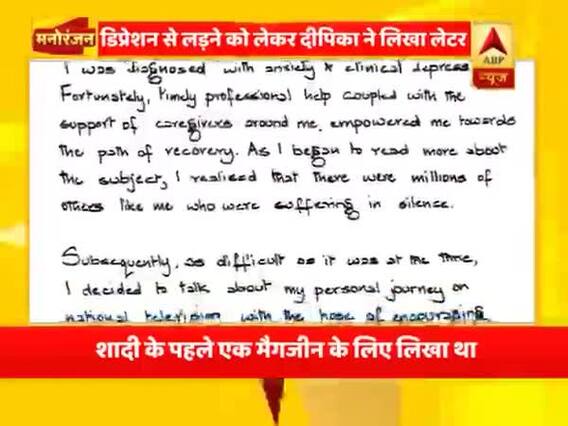 मनोरंजन
डिप्रेशन से लड़ने को लेकर दीपिका ने लिखा लेटर
ABP
न्यूज़
I was diagnosed with anxiety & clinical depress
Fortunately, timely professional help coupled with the
support of caregivers around me, empowered me towards
the path of recovery. As I began to read more about
the subject, I realised that there were millions of
others like me who were suffering in silence.
Subsequently, as difficult as it was at the time,
I decided to talk about my personal journey on
national television with the hope of encouraging
शादी के पहले एक मैगजीन के लिए लिखा था